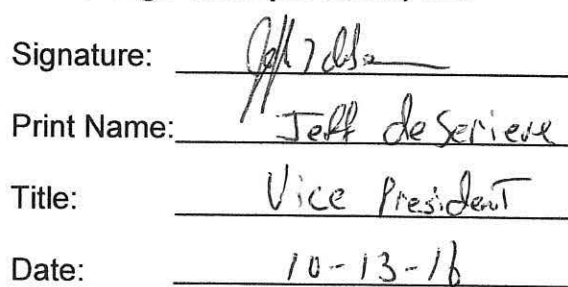 Signature:
Print Name: Jeff deSeriere
Title: Vice President
Date: 10-13-16